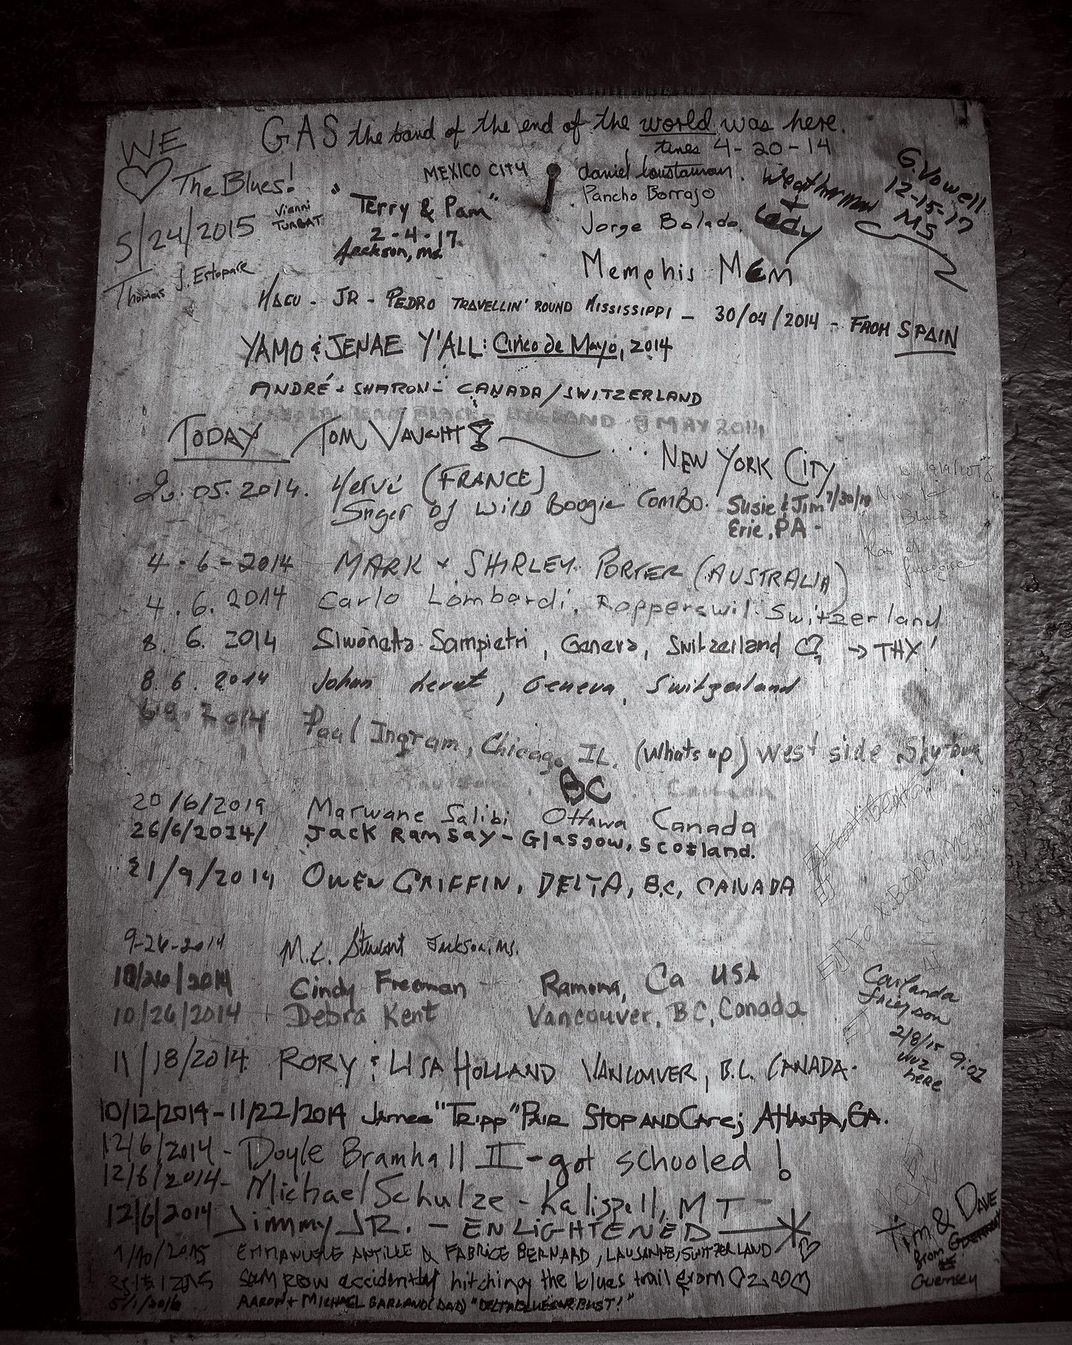 WE
♡ The Blues!
5/24/2015
GAS the band of the end of the world was here.
tunes 4-20-14
MEXICO CITY
daniel
Pancho Borrajo
Jorge Bolado
Weatherman
Lady
G. Vowell
12-15-17
MS
"Terry & Pam"
2-4-17
Jackson, 
Vianni
Thomas J. 
Memphis MEM
JR - PEDRO TRAVELLIN' ROUND MISSISSIPPI - 30/04/2014 - FROM SPAIN
YAMO & JENAE Y'ALL: Cinco de Mayo, 2014
ANDRÉ + SHARON - CANADA/SWITZERLAND
8 MAY 2014
TODAY TOM VAUGHT ... NEW YORK CITY
20.05.2014. Hervé (FRANCE)
Singer of Wild Boogie Combo.
Susie & Jim 7/30/18
Erie, PA -
4-6-2014 MARK & SHIRLEY PORTER (AUSTRALIA)
4.6.2014 Carlo Lombardi, Rapperswil Switzerland
8.6.2014 Sampietri, Geneva, Switzerland → THX!
8.6.2014 Johan , Geneva, Switzerland
2014 Paul Ingram, Chicago, IL, (Whats up) West side
BC Canada
20/6/2019 Marwane Salibi Ottawa Canada
26/6/2014/ Jack Ramsay - Glasgow, Scotland.
21/9/2014 OWEN GRIFFIN, DELTA, B.C, CANADA
9-26-2014 M.C. Stewart Jackson, Ms.
10/26/2014 Cindy Freeman Ramona, Ca USA
10/26/2014 Debra Kent Vancouver, BC, Canada
Carlanda
Jackson
2/8/15 9:02
wuz
here
11/18/2014 RORY & LISA HOLLAND VANCOUVER, B.C. CANADA.
10/12/2014-11/22/2014 James "Tripp" PAIR STOP AND CARE; ATLANTA, GA.
12/6/2014 - Doyle Bramhall II - got schooled!
12/6/2014 - Michael Schulze - Kalispell, MT
12/6/2014 Jimmy JR. - ENLIGHTENED
Tim & DAVE
from
Guernsey
1/10/2015 EMMANUELE & FABRICE BERNARD, LAUSANNE, SWITZERLAND ♡
2015 SAM ROW accidently hitching the blues trail from OZ ♡♡
5/1/2016 AARON + MICHAEL GARLAND (DAD)